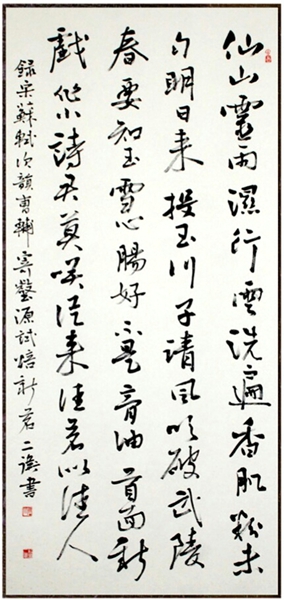 仙山靈雨濕行雲洗遍香肌粉未
勻明日来投玉川子清風吹破武陵
春要知玉雪心腸好不是膏油首面新
戲作小詩君莫笑從来佳茗似佳人
録宋蘇軾次韻曹輔寄壑源試焙新茗 二 書